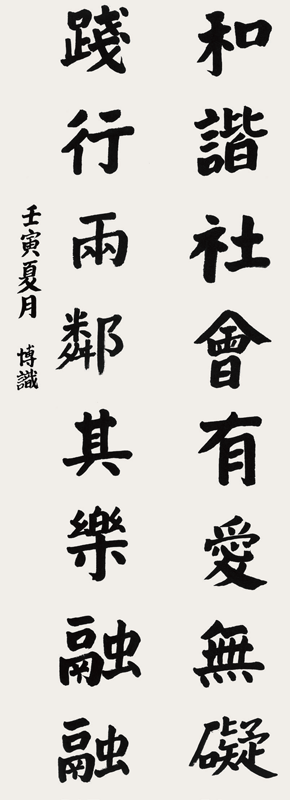 和諧社會有愛無礙
踐行兩鄰其樂融融
壬寅夏月 博識